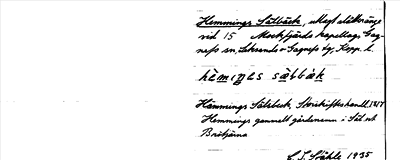 Hemmings Sätbäck, utlagt slåttränge
vid 15 Mockfjärds kapellags, Gag-
nefs sn, Leksands o Gagnefs tg, Kopp. l.
hèmiŋes sàtbàk
Hemmings Sätbeck, Storskifteshandl. 1817
Hemmings gammalt gårdsnamn i Sät och
Britjärna
1935